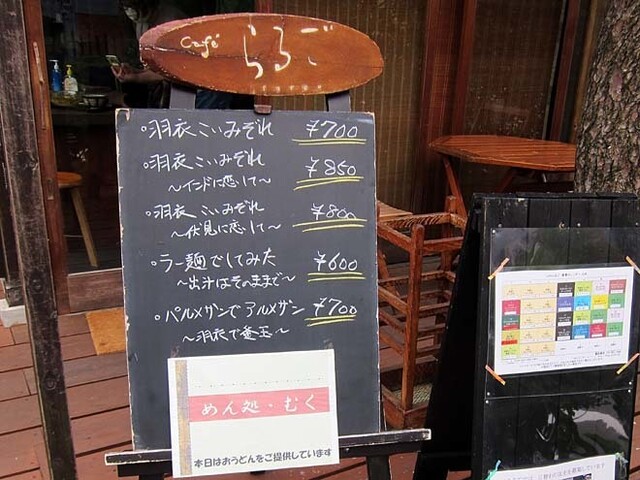 Café らるご
・羽衣こいみぞれ ¥700
・羽衣こいみぞれ ¥850
～インドに恋して～
・羽衣こいみぞれ ¥800
～伏見に恋して～
・ラー麺でしてみた ¥600
～出汁はそのままで～
・パルメザンでアルメザン ¥700
～羽衣で釜玉～
めん処・むく
本日はおうどんをご提供しています